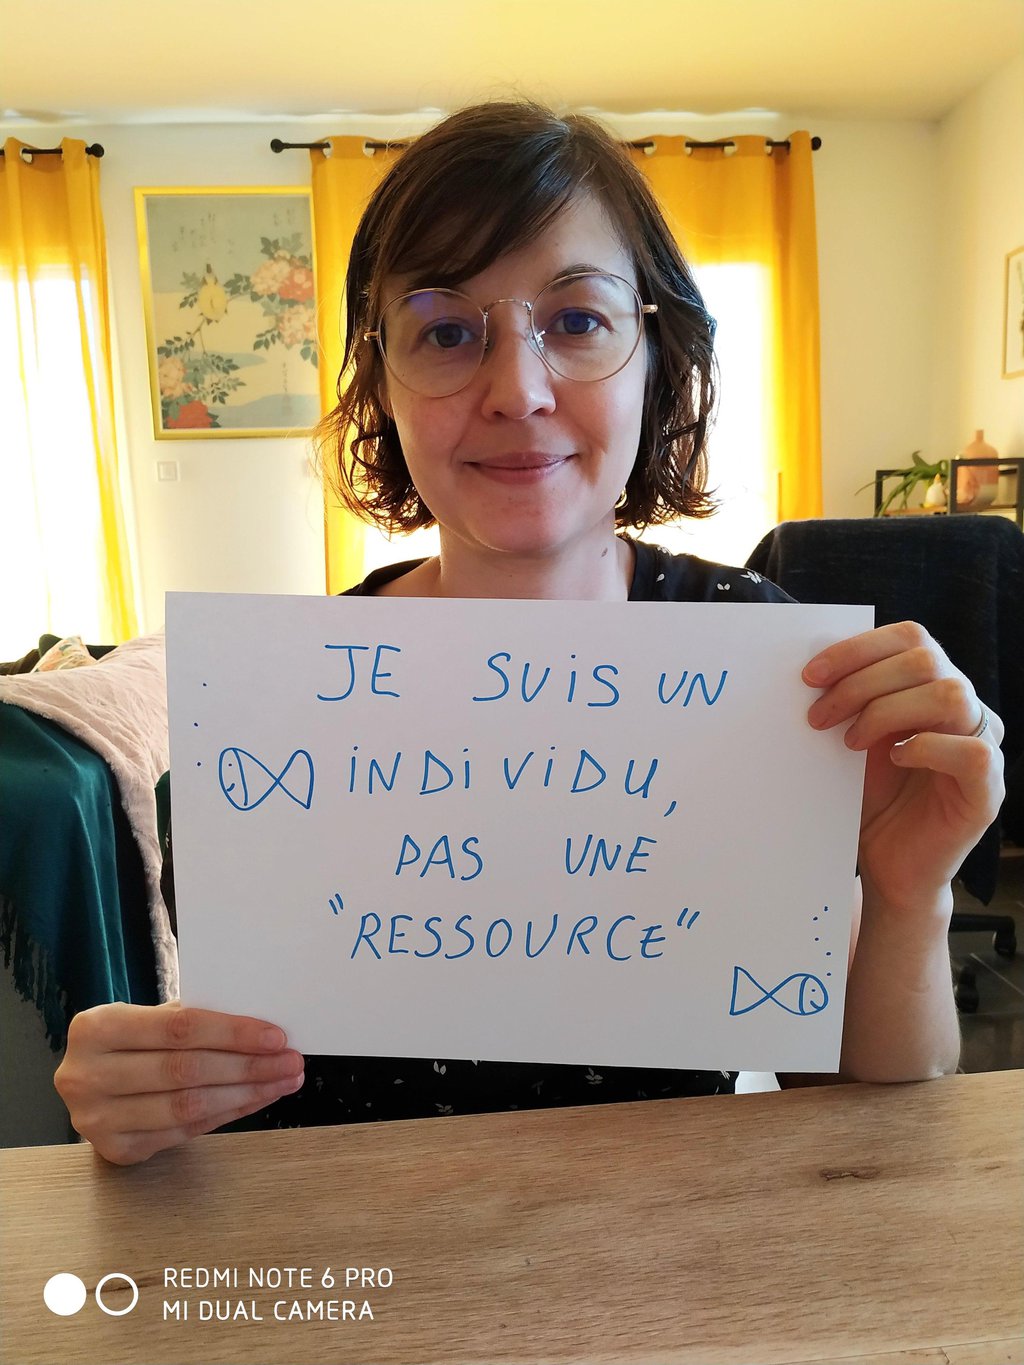 JE SUiS UN
iNDiViDU,
PAS UNE
"RESSOURCE"
REDMI NOTE 6 PRO
MI DUAL CAMERA